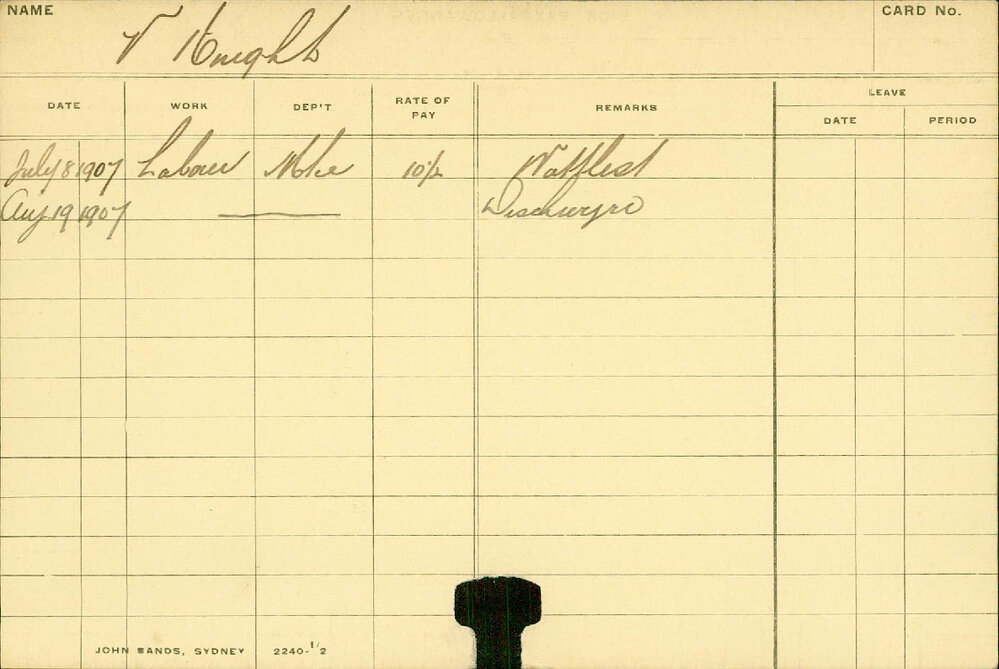 NAME
CARD No.
V Knight
DATE WORK DEP'T RATE OF PAY REMARKS LEAVE
DATE PERIOD
July 8 1907 Labour 10/2
Aug. 19 1907 Discharged
JOHN SANDS, SYDNEY 2240-1/2